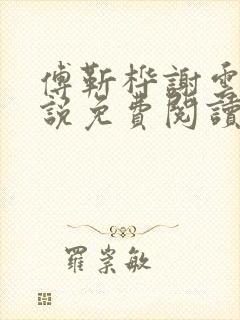 傅靳桦謝雲
說免費閱讀
羅崇敏